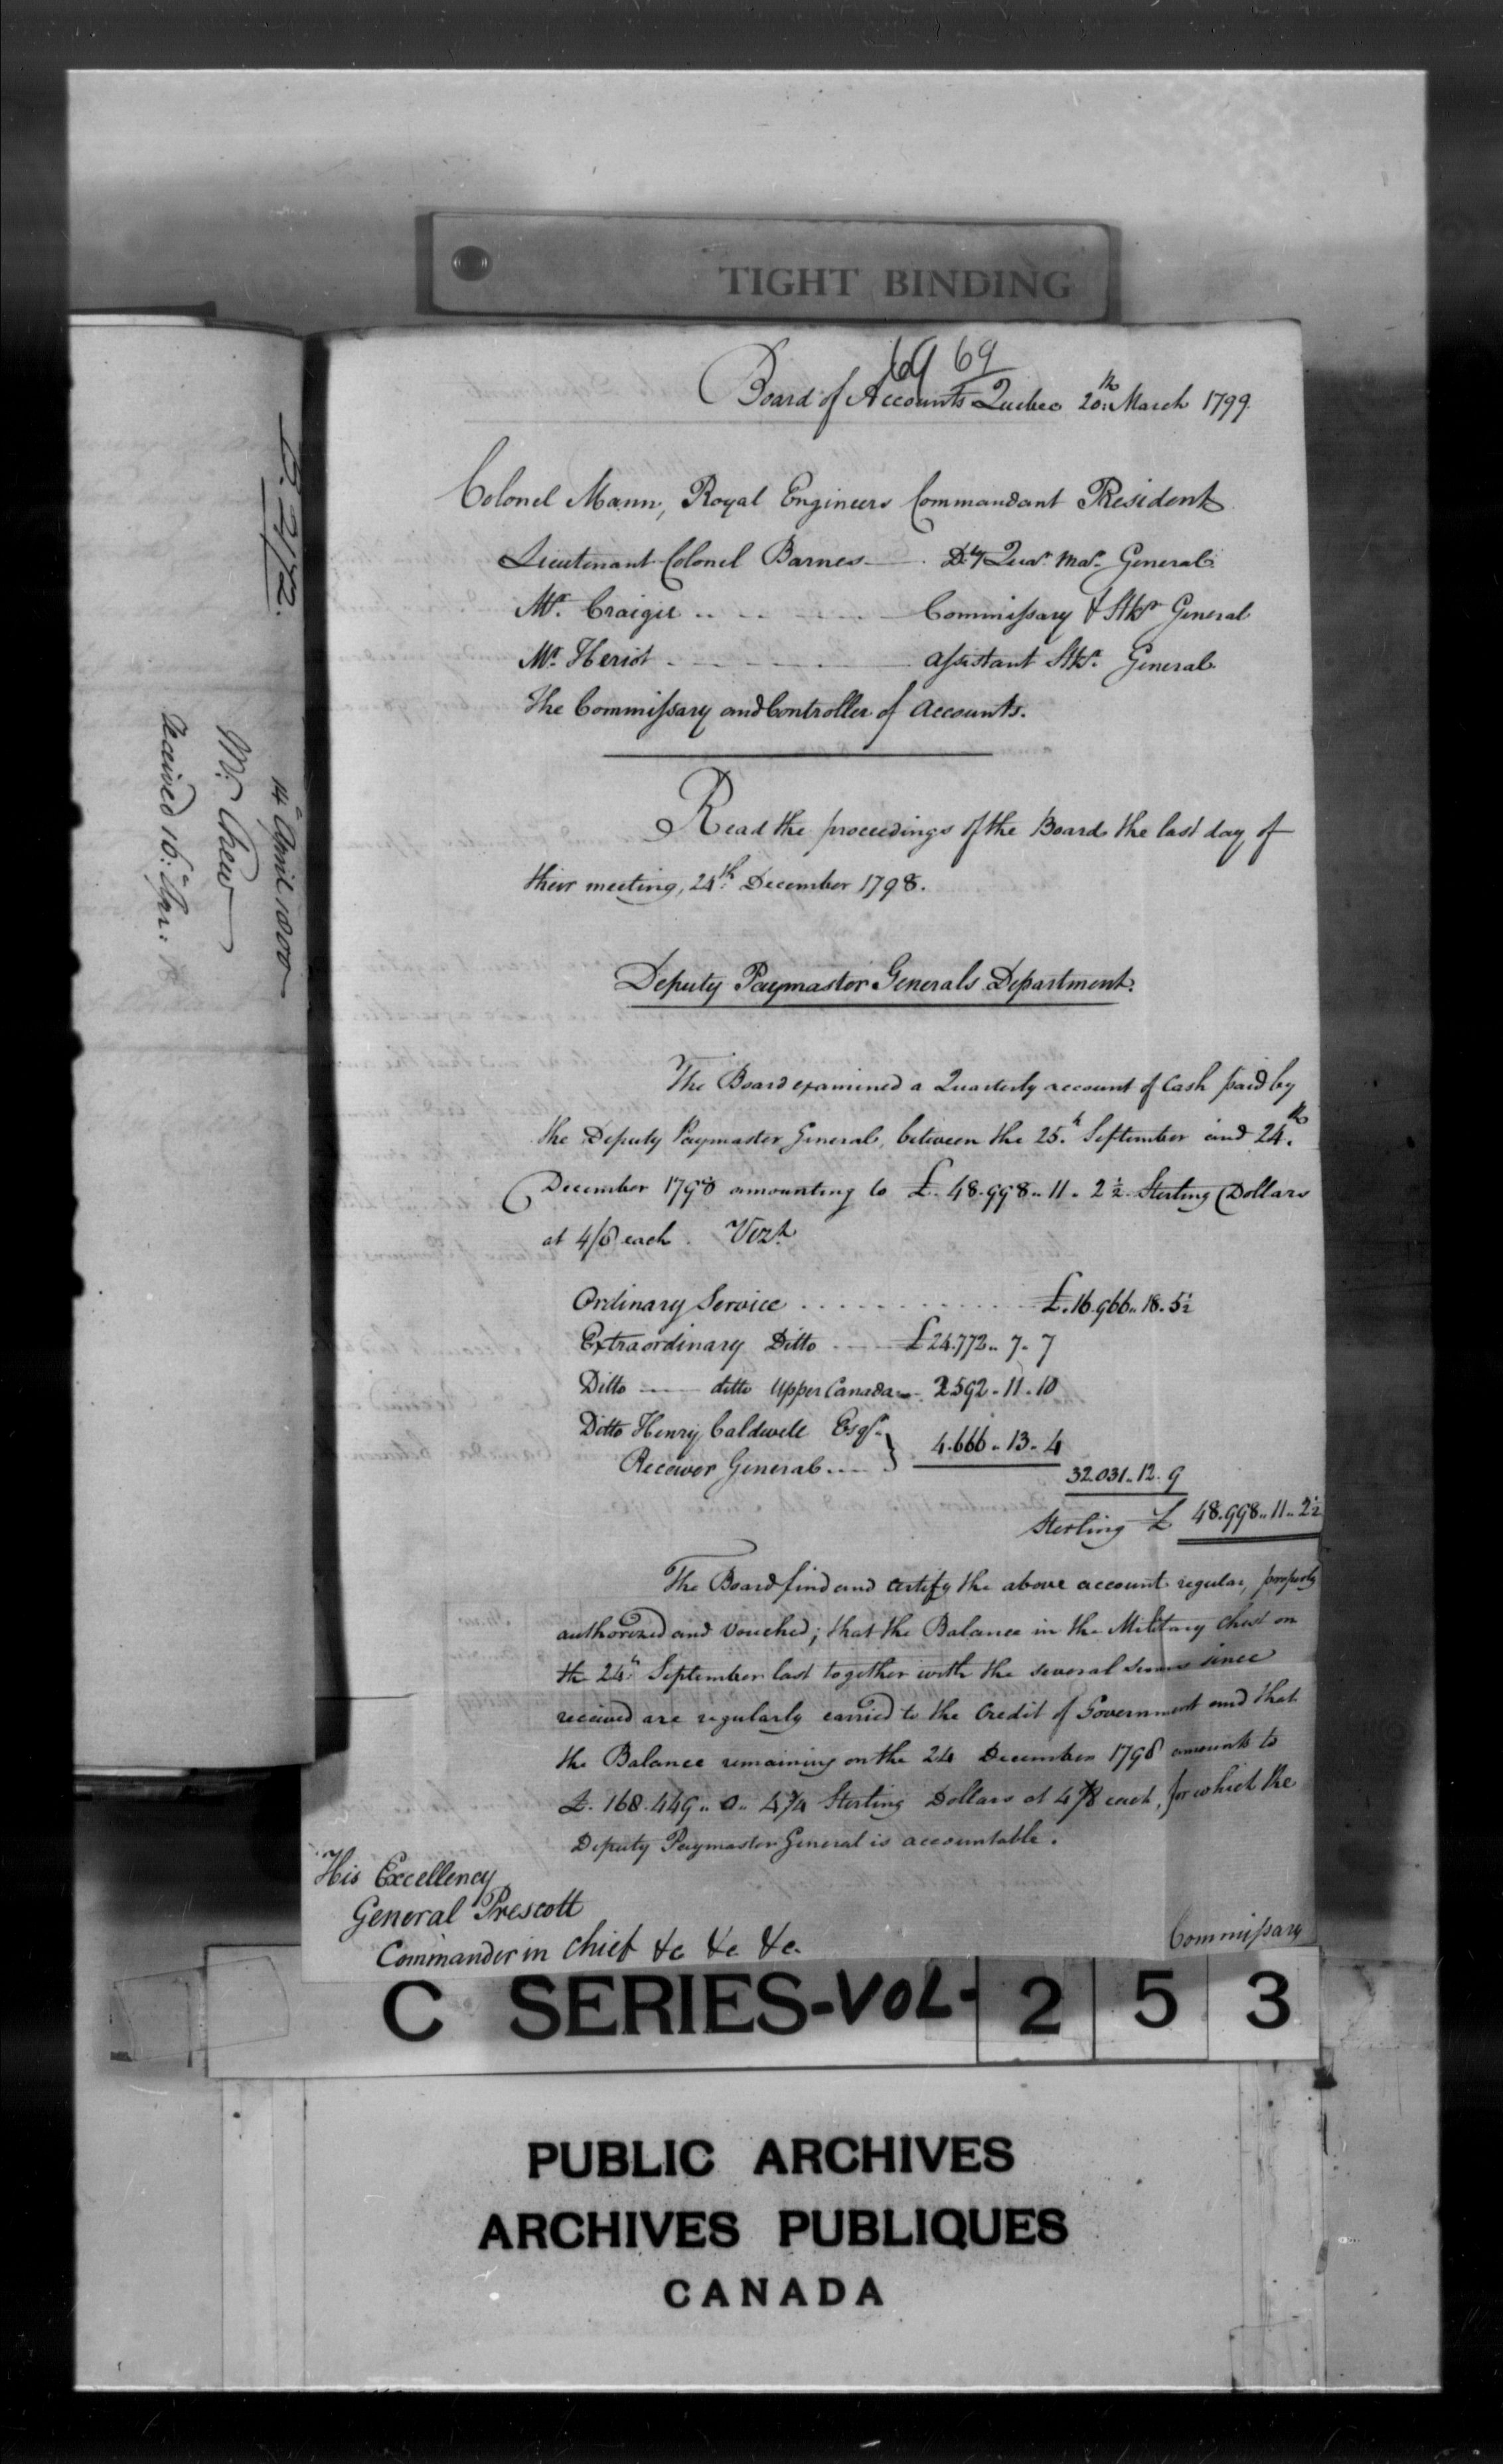 TIGHT BINDING
69 69
Board of Accounts Quebec 20th March 1799.
Colonel Mann, Royal Engineers Commandant President
Lieutenant Colonel Barnes — Dy Quar. Mar. General
Mr. Craigie .. - - - - Commissary & Stkr General
Mr. Heriot - - - - Assistant Stkr. General
The Commissary and Controller of Accounts.
Read the proceedings of the Board the last day of
their meeting, 24th December 1798.
Deputy Paymaster Generals Department.
The Board examined a Quarterly account of Cash paid by
the Deputy Paymaster General, between the 25th September and 24th
December 1798 amounting to £. 48.998.. 11. 2½ Sterling Dollars
at 4/8 each. Vizt.
Ordinary Service . . . . . . . . £.16.966.. 18. 5½
Extraordinary Ditto - - - £24.772.. 7. 7
Ditto — ditto Upper Canada - 2592. 11. 10
Ditto Henry Caldwell Esqr.
Receiver General .... } 4.666.. 13. 4
32.031.. 12. 9
Sterling £ 48.998.. 11.. 2½
The Board find and certify the above account regular, properly
authorized and Vouched; that the Balance in the Military Chest on
the 24th September last together with the several sums since
received are regularly carried to the Credit of Government and that
the Balance remaining on the 24 December 1798 amounts to
£. 168.449.. 0.. Sterling Dollars at 4/8 each, for which the
Deputy Paymaster General is accountable.
His Excellency
General Prescott
Commander in Chief &c &c &c.
Commissary
14 April 1800
Mr. Chew
Received 16:
C SERIES-VOL- 2 5 3
PUBLIC ARCHIVES
ARCHIVES PUBLIQUES
CANADA